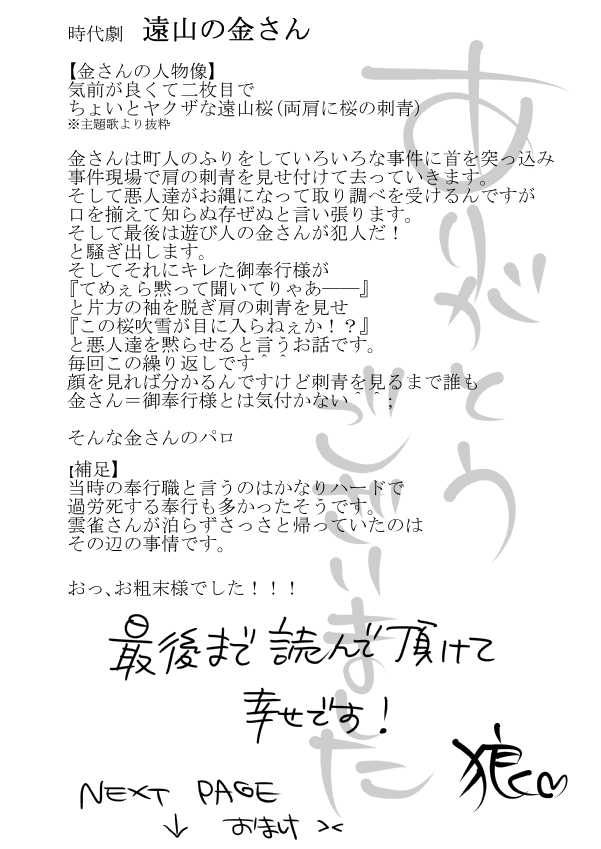 時代劇 遠山の金さん
【金さんの人物像】
気前が良くて二枚目で
ちょいとヤクザな遠山桜(両肩に桜の刺青)
※主題歌より抜粋
金さんは町人のふりをしていろいろな事件に首を突っ込み
事件現場で肩の刺青を見せ付けて去っていきます。
そして悪人達がお縄になって取り調べを受けるんですが
口を揃えて知らぬ存ぜぬと言い張ります。
そして最後は遊び人の金さんが犯人だ！
と騒ぎ出します。
そしてそれにキレた御奉行様が
『てめぇら黙って聞いてりゃあ――』
と片方の袖を脱ぎ肩の刺青を見せ
『この桜吹雪が目に入らねぇか！？』
と悪人達を黙らせると言うお話です。
毎回この繰り返しです＾＾
顔を見れば分かるんですけど刺青を見るまで誰も
金さん＝御奉行様とは気付かない＾＾；
そんな金さんのパロ
[補足】
当時の奉行職と言うのはかなりハードで
過労死する奉行も多かったそうです。
雲雀さんが泊らずさっさと帰っていたのは
その辺の事情です。
おっ、お粗末様でした！！！
ありがとう
ございました
最後まで読んで頂けて
幸せです！
狼
NEXT PAGE
↓ おまけ ><